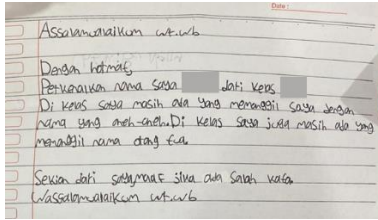 Date :
Assalamualaikum wr.wb
Dengan hormat,
Perkenalkan nama saya dari kelas
Di kelas saya masih ada yang memanggil saya dengan
nama yang aneh-aneh. Di kelas saya juga masih ada yang
memanggil nama orang tua.
Sekian dari saya, maaf jika ada salah kata.
Wassalamualaikum wr.wb